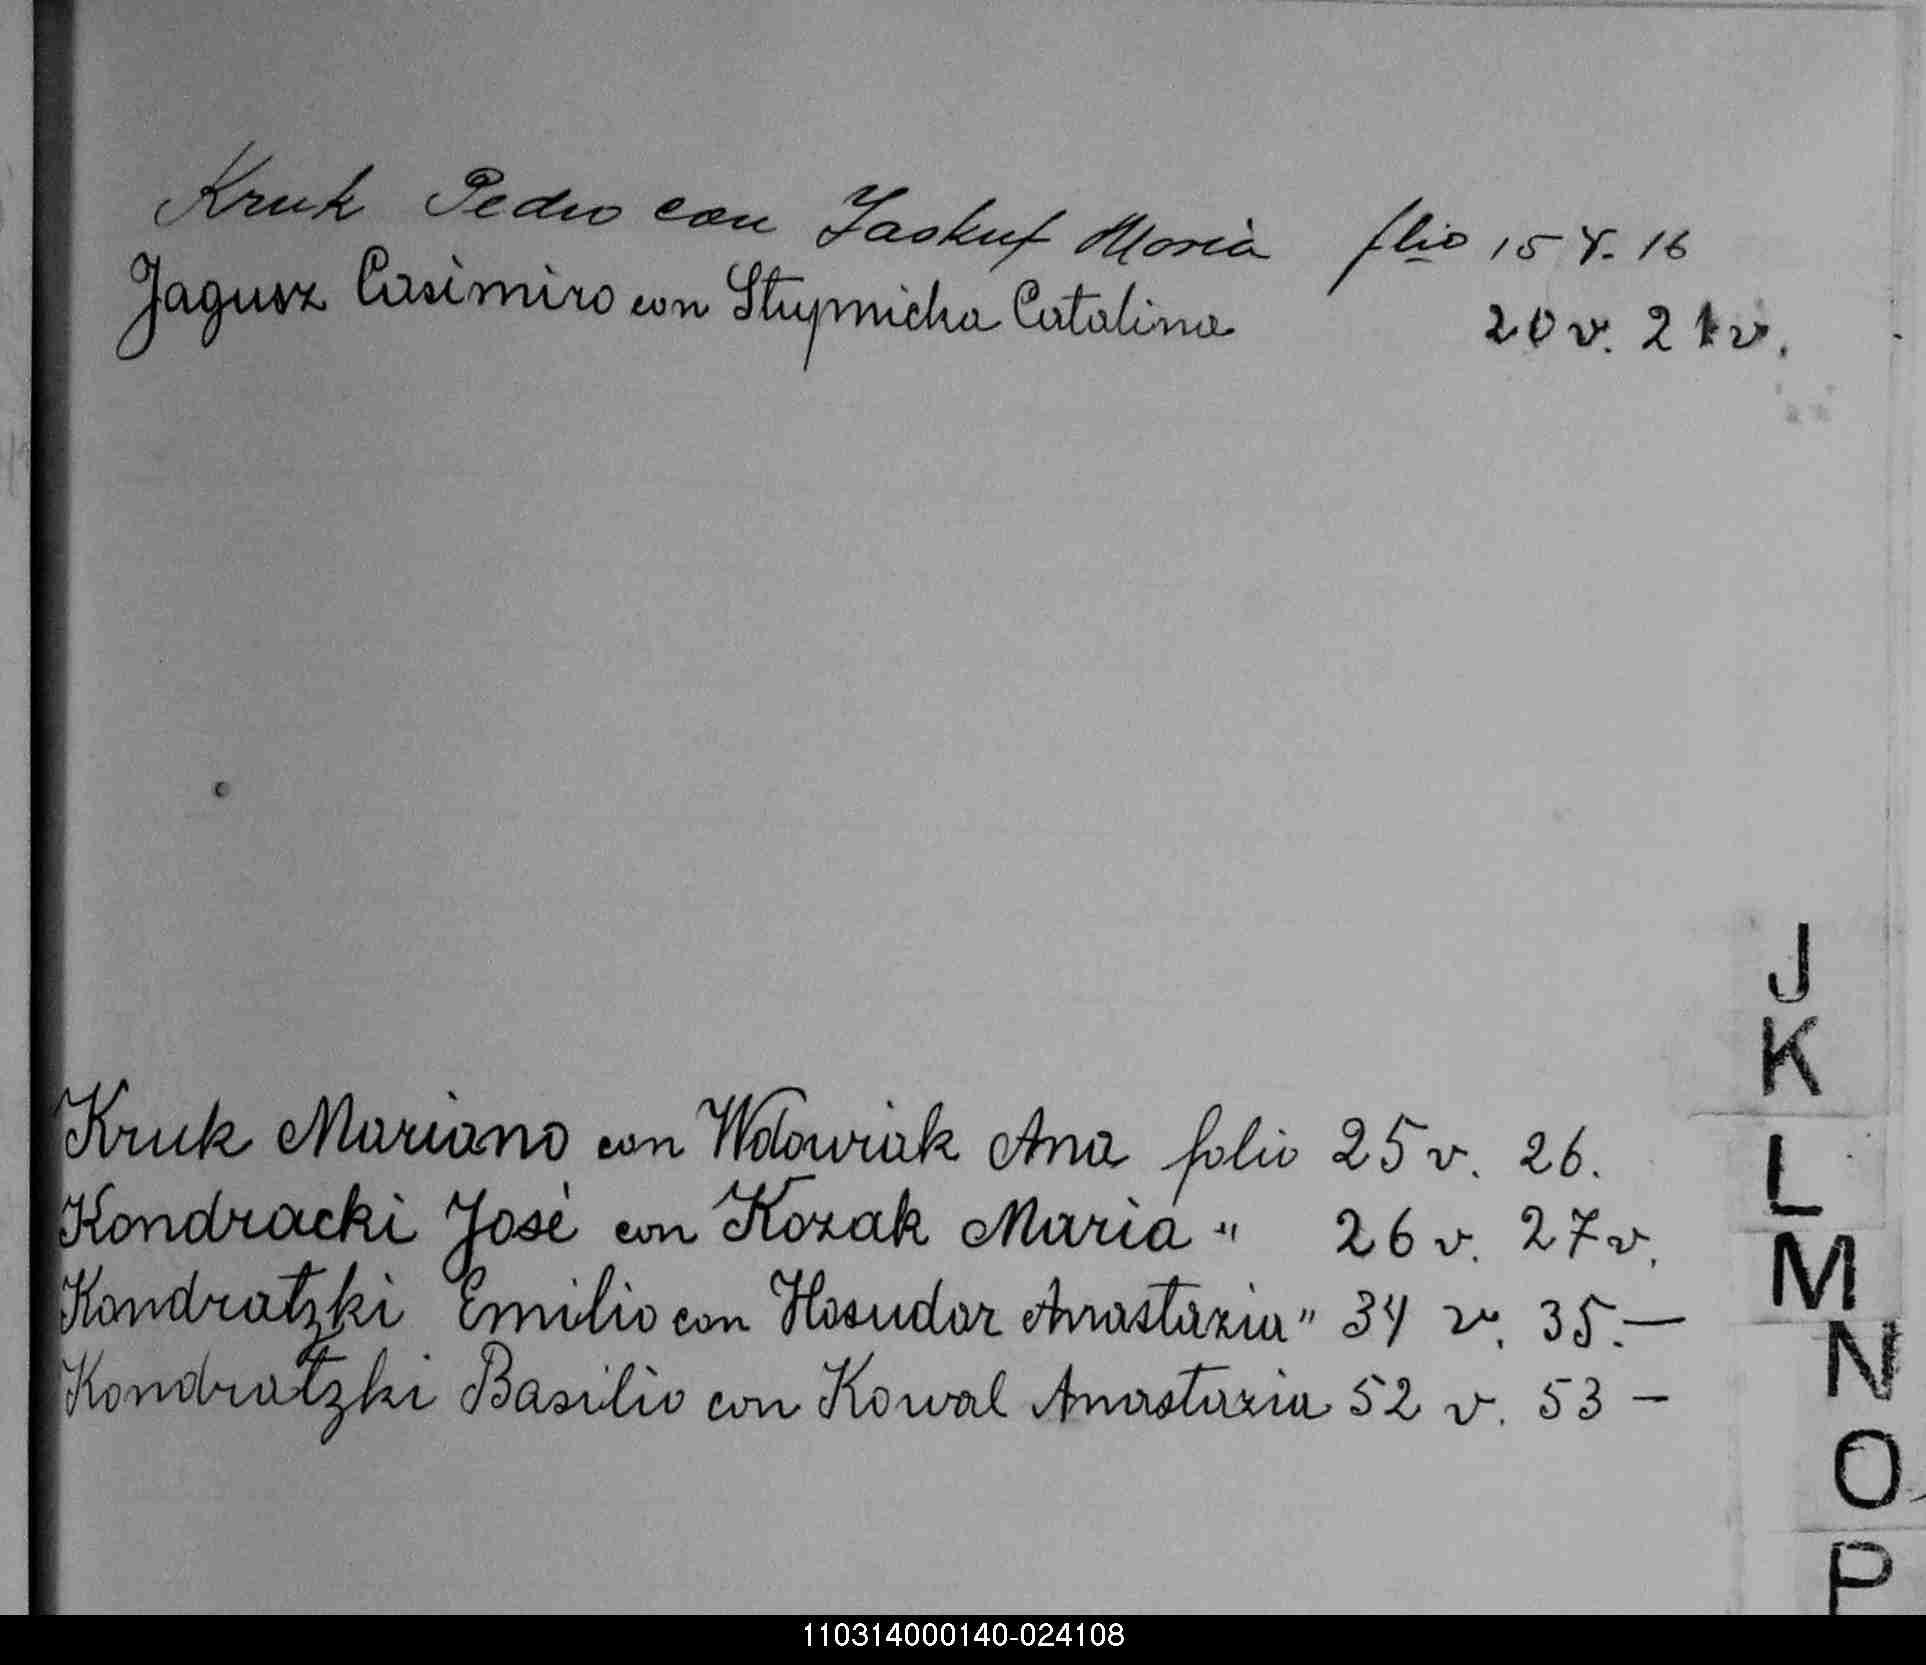 Kruk Pedro con Jaskuf Maria folio 15 v. 16
Jagusz Casimiro con Stupnicka Catalina 20 v. 21 v.
J
K
Kruk Mariano con Wdowiak Ana folio 25 v. 26.
L
Kondracki José con Kozak Maria " 26 v. 27 v.
M
Kondratzki Emilio con Hosudar Anastazia " 34 v. 35.—
N
Kondratzki Basilio con Kowal Anastazia 52 v. 53 —
O
P
110314000140-024108